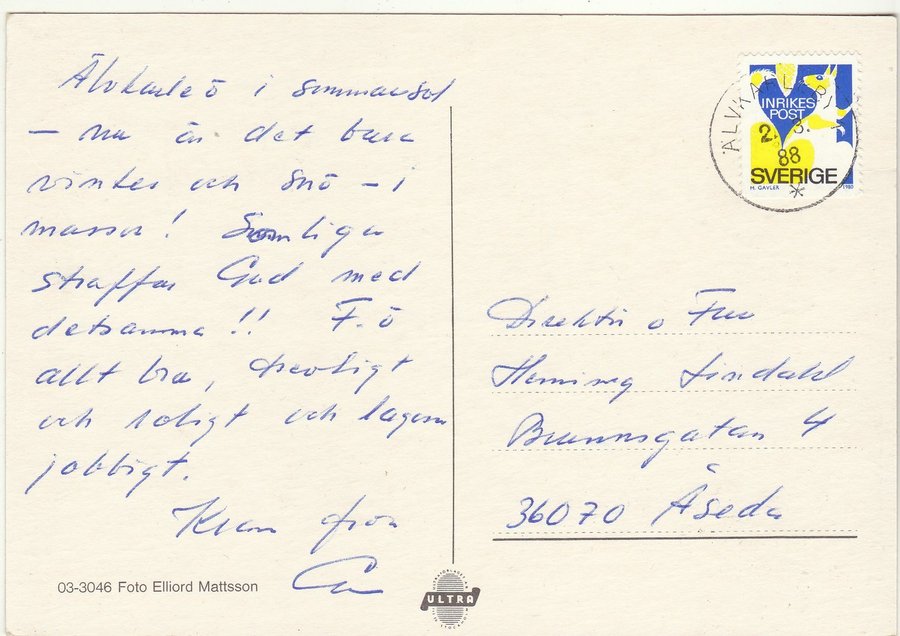 Älvkarleö i sommarsol
– nu är det bara
vinter och snö – i
massor! Somliga
straffar Gud med
detsamma!! F.ö
allt bra, trevligt
och roligt och lagom
jobbigt.
Kram från
03-3046 Foto Elliord Mattsson
ULTRA
INRIKES
POST
88
SVERIGE
M. GAVLER 1980
Direktör o Fru
Henning Lindahl
Brunnsgatan 4
36070 Åseda